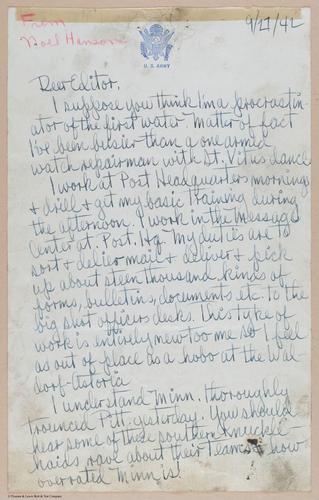 From
Noel Hanson
9/27/42
U. S. ARMY
Dear Editor,
I suppose you think I'm a procrastin-
ator of the first water. Matter of fact
I've been busier than a one armed
watch repairman with St. Vitus dance
I work at Post Headquarters mornings
& drill & get my basic training during
the afternoon. I work in the Message
Center at Post. Hq. My duties are to
sort & deliver mail & deliver & pick
up about steen thousand kinds of
forms, bulletins, documents etc. to the
big shot officers desks. This type of
work is entirely new too me so I feel
as out of place as a hobo at the Wal-
dorf-Astoria
I understand Minn. thoroughly
trounced Pitt. yesterday. You should
hear some of these southern knuckel-
haids rave about their teams & how
overrated Minn is!